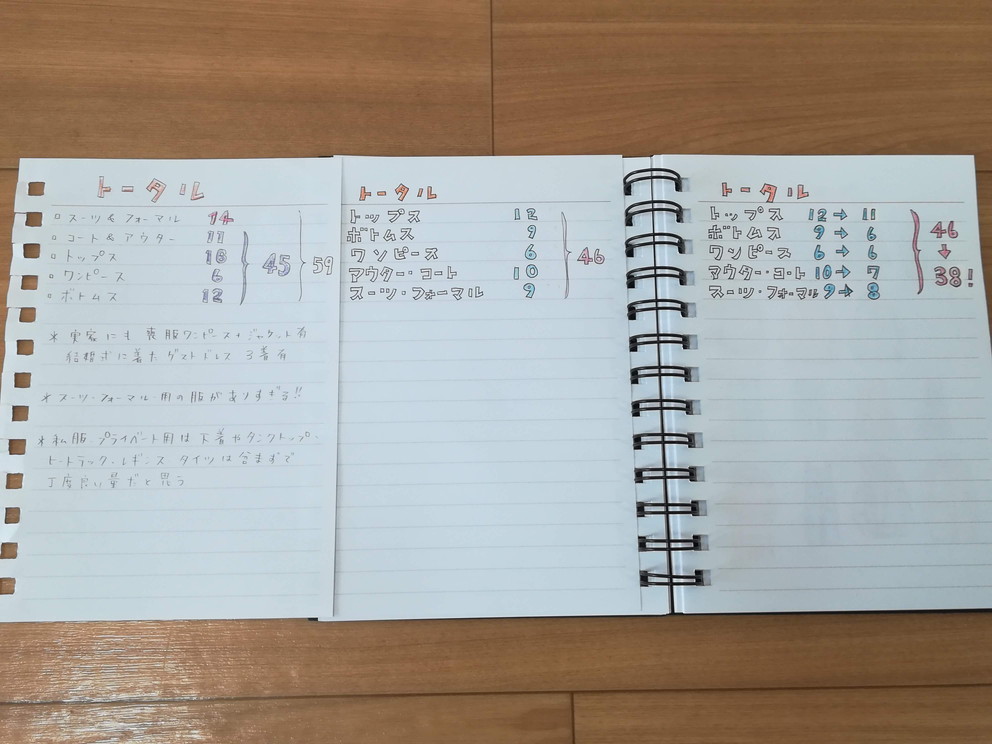 トータル
▫ スーツ&フォーマル 14
▫ コート&アウター 11
▫ トップス 16
▫ ワンピース 6
▫ ボトムス 12
45
59
※ 実家にも 喪服ワンピース+ジャケット有
結婚式に着たゲストドレス 3着有
※ スーツ・フォーマル用の服がありすぎる!!
※ 私服・プライベート用は下着やタンクトップ・
レギンス タイツは含まずで
丁度良い量だと思う
トータル
トップス 12
ボトムス 9
ワンピース 6
アウター・コート 10
スーツ・フォーマル 9
46
トータル
トップス 12→11
ボトムス 9→6
ワンピース 6→6
アウター・コート 10→7
スーツ・フォーマル 9→8
46
↓
38!